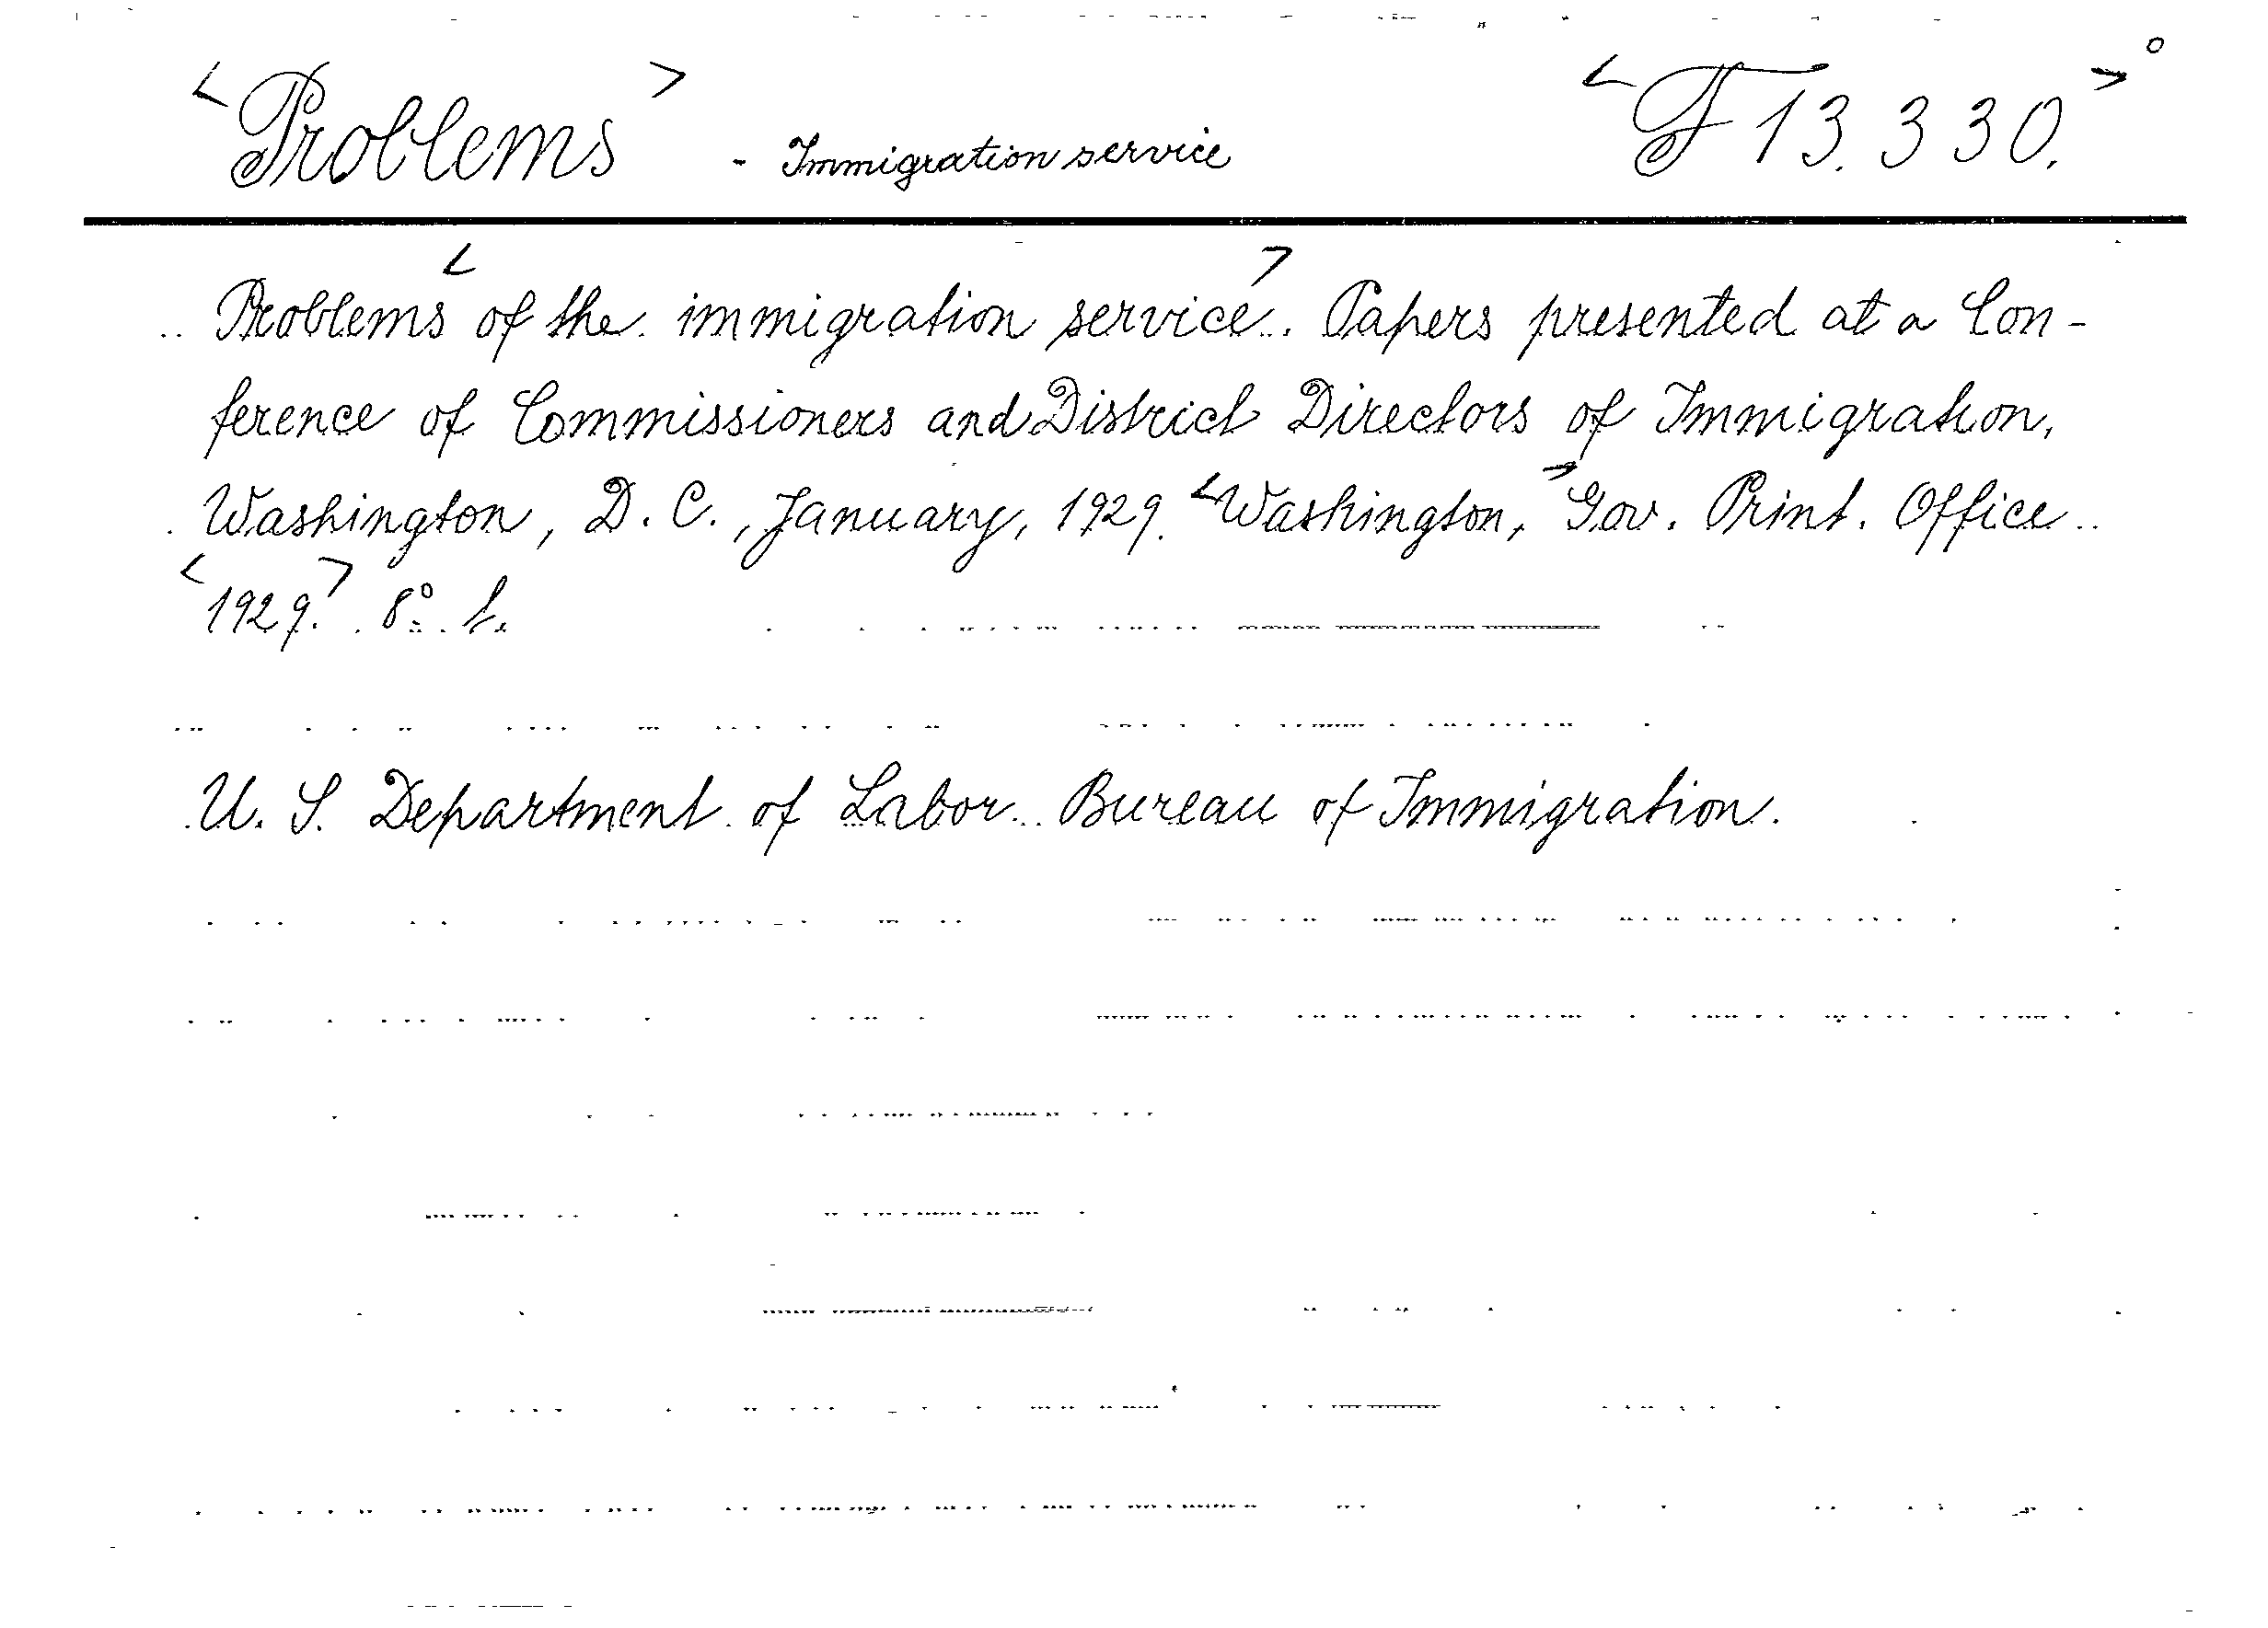 <Problems> - Immigration service <F 13.330.>°
Problems <of the immigration service>. Papers presented at a Con-
ference of Commissioners and District Directors of Immigration,
Washington, D. C., January, 1929. <Washington,> Gov. Print. Office.
<1929.> 8°.
U. S. Department of Labor. Bureau of Immigration.